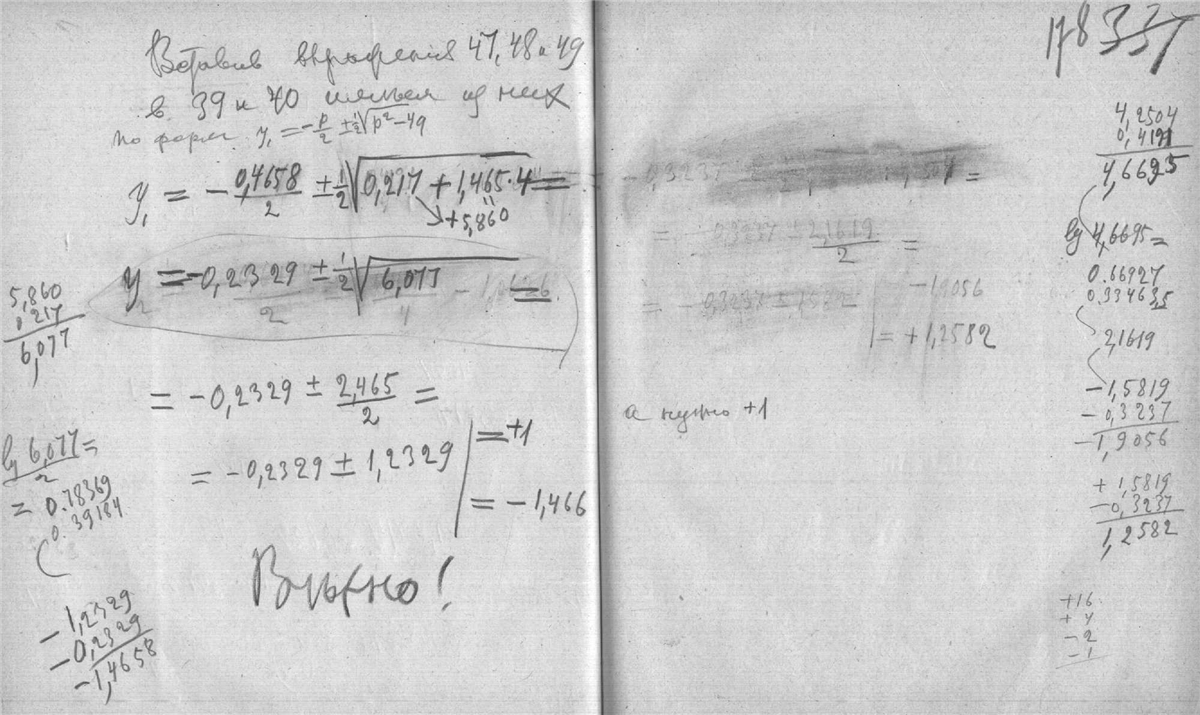 Вставив выражения 47, 48 и 49
в 39 и 40 имеем из них
по форм. y₁ = -p/2 ± 1/2 √p² - 4q
y₁ = - 0,4658/2 ± 1/2 √0,217 + 1,465·4 =
+5,860
y₂ = -0,2329 ± 1/2 √6,077
= -0,2329 ± 2,465/2 =
= -0,2329 ± 1,2329 | = +1
= -1,466
Верно!
5,860
0,217
6,077
lg 6,077/2 =
= 0.78369
0.39184
- 1,2329
- 0,2329
-1,4658
178 337
- 0,3237
= - 0,3237 ± 2,1619/2 =
= - 0,3237 ± | - 1,9056
= + 1,2582
а нужно +1
4,2504
0,4191
4,6695
lg 4,6695 =
0.66927
0.334635
2,1619
- 1,5819
- 0,3237
- 1,9056
+ 1,5819
- 0,3237
1,2582
+16
+4
-2
-1